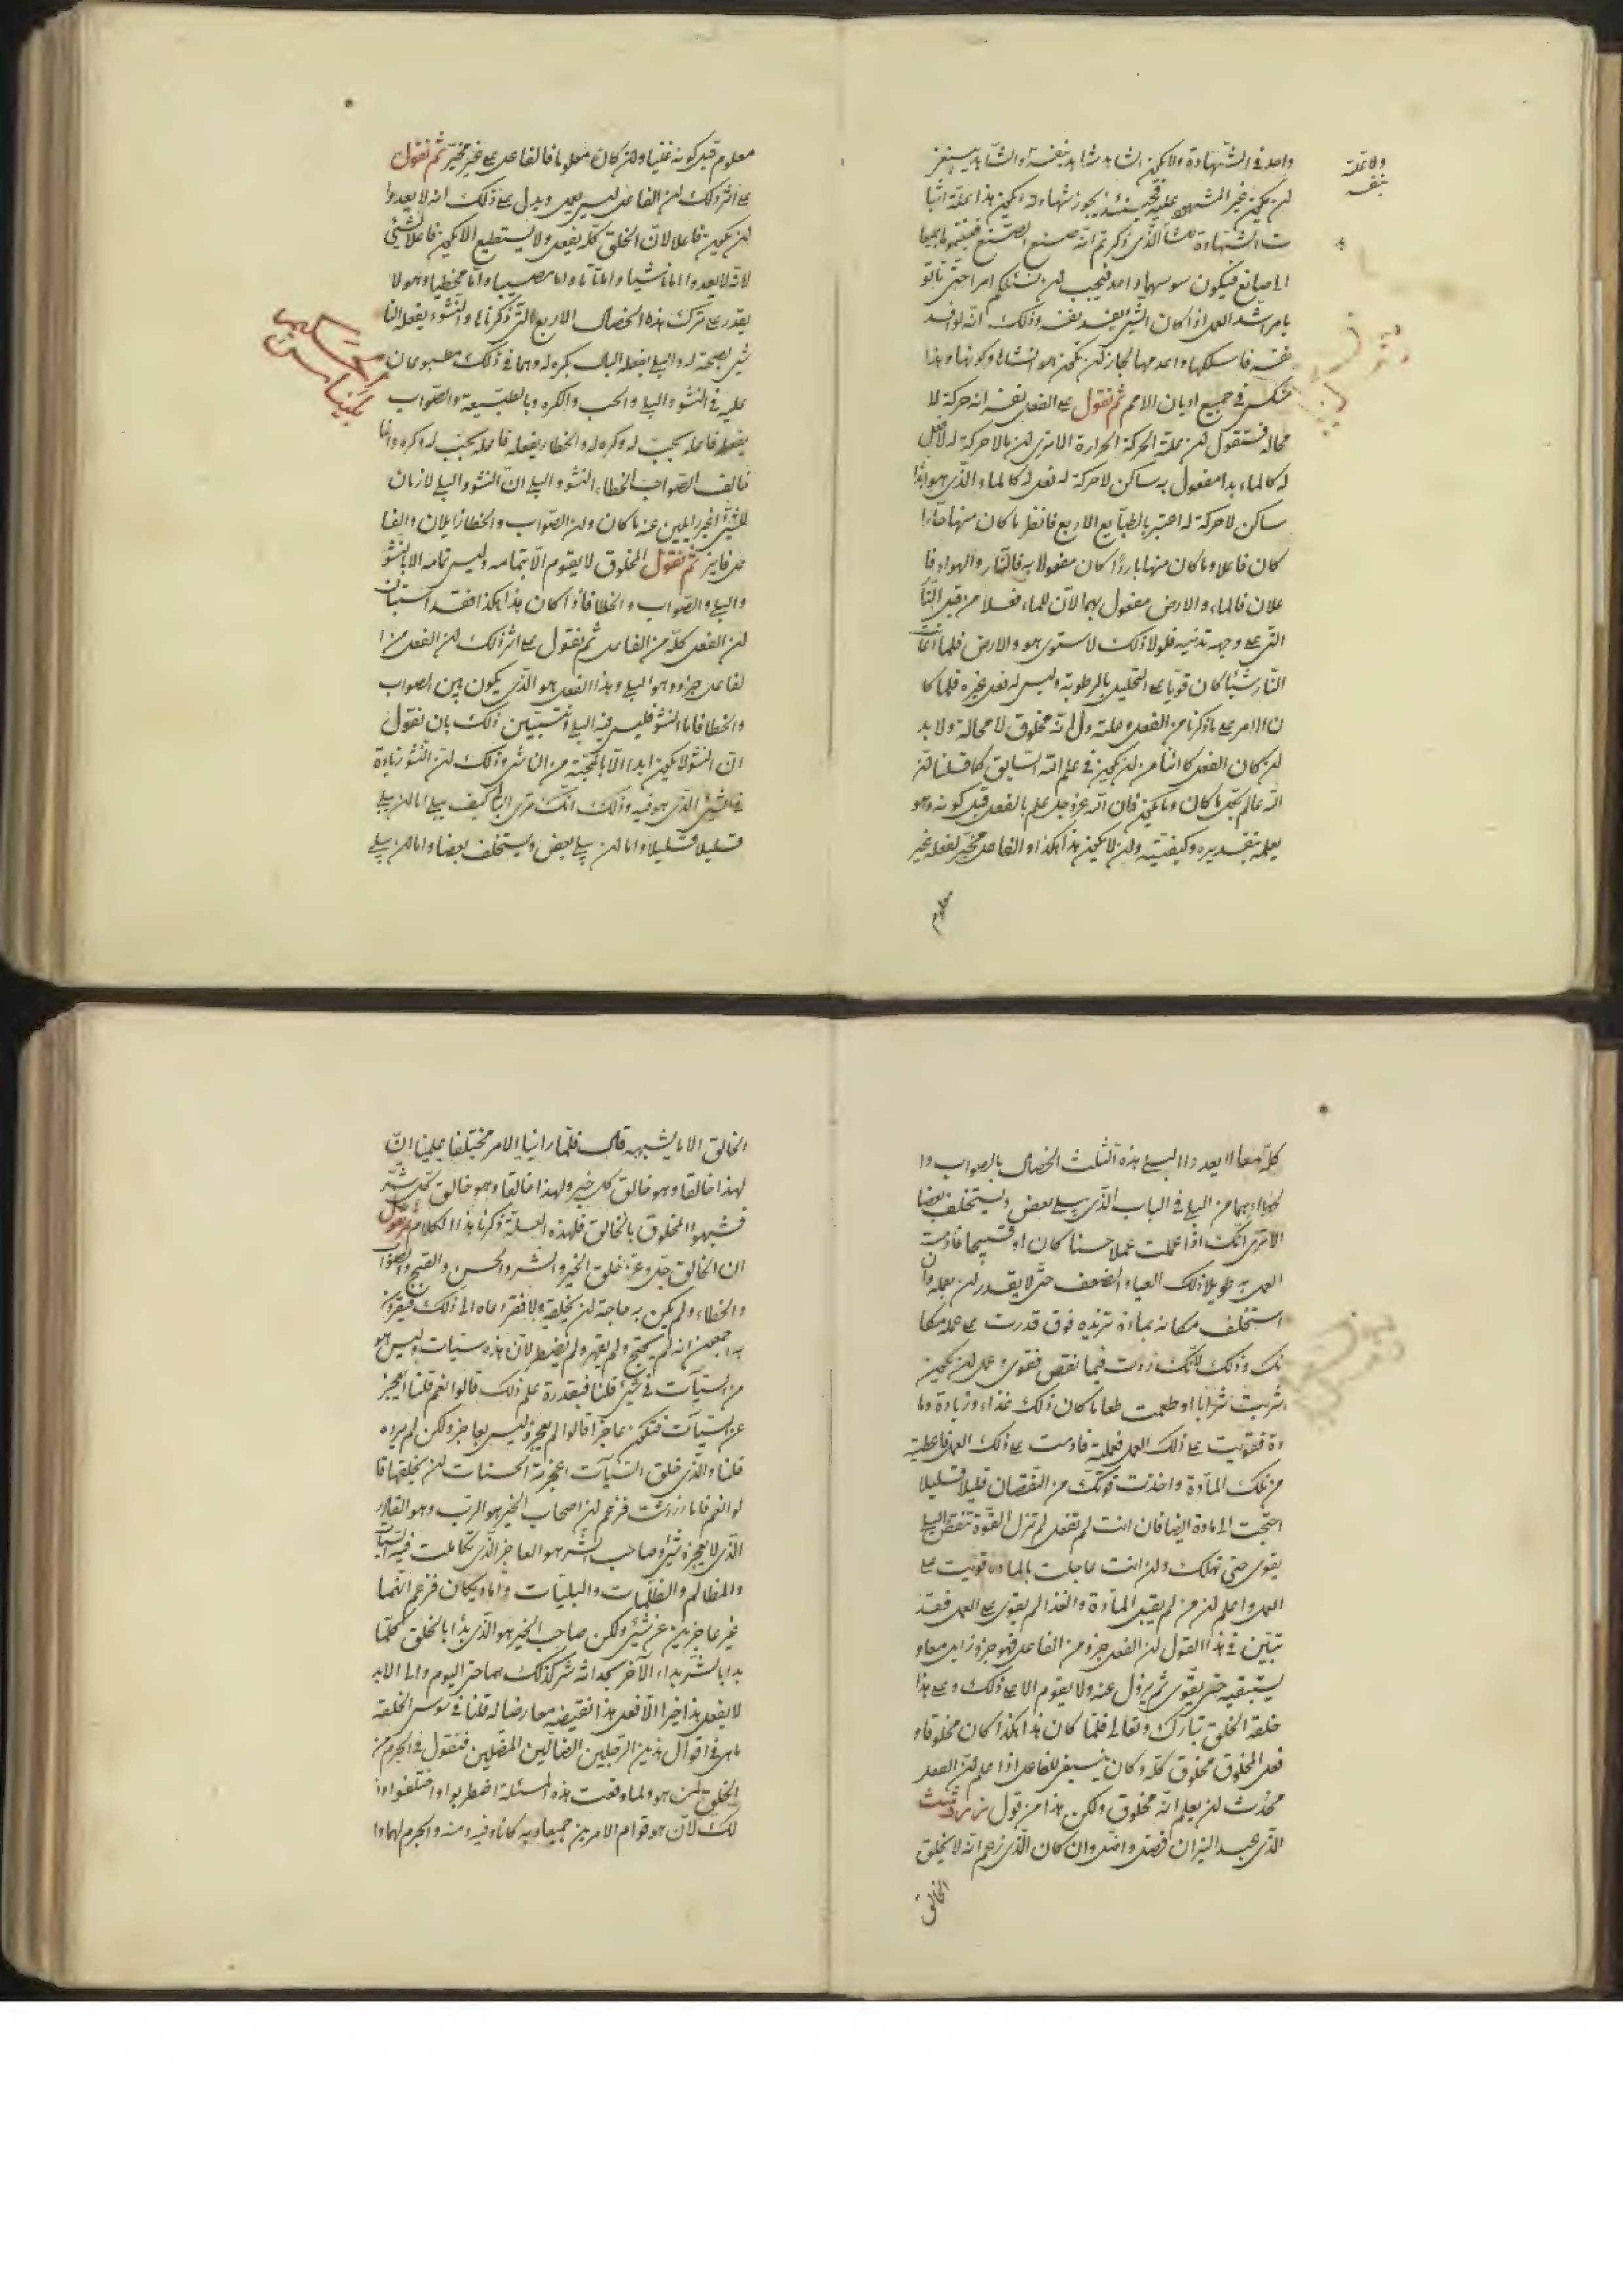 واحد فى الشهادة ولا يكون الشاهد شاهد بنفسه والشاهد
لن يكون غير المشهود عليه فحينئذ يجوز شهادته ويكون هذا علة اثبا
ت الشهادة الذى ذكرتم انه صنع الصنع جميعا
الى صانع فيكون سوسهما واحد فيجب لن نسئلكم امرا حتى تاتو
بامر اشد العمل اذا كان الشئ يفسد نفسه وذلك انه لو افسد
نفسه واحد منها لجاز لن يكون هو انشاها وكونها وهذا
فى جميع اديان الامم ثم نقول على الفعل نفسه انه حركة لا
محالة فنقول لن علة الحركة الحرارة الا ترى لن ما لا حركة له لا فعل
له كالماء بدا مفعول به ساكن لا حركة له فعل له كالماء الذى هو ابدا
ساكن لا حركة له اعتبر بالطبايع الاربع فانظر ما كان منها حارا
كان فاعلا وما كان منها باردا كان مفعولا به فالنار والهواء فا
علان فالماء والارض مفعول بهما لان للماء فعلا من قبل النا
التى على وجهه تدنيه فلولا ذلك لاستوى هو والارض فلما
النار شيئا كان قويا على التحليل بالرطوبة وليس له فعل غيره فلما كا
ن الامر على ما ذكرنا من الفعل وعلته دل انه مخلوق لا محالة ولا بد
لن كان الفعل كائنا من لن يكون فى علم الله السابق كما قلنا لن
الله عالم بكل ما كان وما يكون فان الله عز وجل علم بالفعل قبل كونه وهو
يعلمه بتقديره وكيفيته ولن لا يكون هذا هكذا والفاعل مخير لفعله غير
معلوم
ولا علة
بنفسه
معلوم قبل كونه غنيا ولن كان معلوما فالفاعل على غير مخير ثم نقول
على اثر ذلك لن الفاعل ليس يعمل ويدل على ذلك انه لا يعدوا
لن يكون فاعلا لان الخلق كله يفعل ولا يستطيع الا يكون فاعلا لشئ
لانه لا يعدوا اما ناشيا واما واما مصيبا واما مخطيا وهو لا
يقدر على ترك هذه الخصال الاربع التى ذكرناها والنشوء يفعله النا
شى بصحته له والبلى يفعله البالى بكره له وهما فى ذلك مطبوعان
عليه فى النشو والبلى والحب والكره وبالطبيعة والصواب
يفعله فاعله بحب له وكره له والخطاء يفعله فاعله بحب له وكره وانما
خالف الصواب الخطاء النشو والبلى ان النشو والبلى لازمان
للشئ غير زايلين عنه ما كان ولن الصواب والخطا زايلان والفا
عل ثم نقول المخلوق لا يقوم الا بتمامه وليس تمامه الا بالنشو
والبلى والصواب والخطا فاذا كان هذا هكذا فقد استبان
لن الفعل كله من الفاعل ثم نقول على اثر ذلك لن الفعل من ا
لفاعل جزو وهو البلى وهذا الفعل هو الذى يكون بين الصواب
والخطا فاما النشو فليس فيه البلى ونستبين ذلك بان نقول
ان النشو لا يكون ابدا الا بالمحبة من الناشى وذلك لن النشو زيادة
فى الشئ الذى هو فيه وذلك انك ترى البالى كيف يبلى اما لن يبلى
قليلا قليلا واما لن يبلى بعض ويستخلف بعضا واما لن يبلى
كله معا لا يعدوا البلى هذه الثلث الخصال بالصواب وا
لخطاء وهما من البلى فى الباب الذى يبلى بعض ويستخلف بعضا
الا ترى انك اذا عملت عملا حسنا كان او قبيحا فادمت
العمل به طويلا نالك العياء والضعف حتى لا يقدر لن يعمله وان
استخلف مكانه بمادة تزيده فوق قدرته على عمله مكا
نك وذلك لانك زدت فيما نقص فقوى وعمل لن يكون
شربت شرابا او طعمت طعاما كان ذلك غذاء وزيادة وما
دة فقويت على ذلك العمل فعملته فادمت على ذلك العمل فاعطيته
من تلك المادة واخذت قوتك من النقصان قليلا قليلا
احتجت الى مادة ايضا فان انت لم تفعل لم تزل القوة تنقص والبلى
يقوى حتى تهلك ولن انت عاجلت بالمادة قويت على
العمل واعلم لن من لم يقبل المادة والغذا لم يقوى على العمل فقد
تبين فى هذا القول لن الفعل جزو من الفاعل فهو جزو زايل معاو
يستبقيه حتى يقوى ثم يزول عنه ولا يقوم الا على ذلك وعلى هذا
خلقه الخلق تبارك وتعالى فلما كان هذا هكذا كان مخلوقا و
فعل المخلوق مخلوق كله وكان ينبغى للفاعل اذا علم لن الفعل
محدث لن يعلم انه مخلوق ولكن هذا من قول زردشت
الذى عبد النيران فضل واضل وان كان الذى زعم انه لا يخلق
الخالق
الخالق الا ما يشبهه قال فلما راينا الامر مختلفا علمنا ان
لهذا خالقا وهو خالق كل خير ولهذا خالقا وهو خالق كل شر
فشبهوا المخلوق بالخالق فلهذه العلة ذكرنا هذا الكلام ثم نقول
ان الخالق جل وعز خلق الخير والشر والحسن والقبيح والصواب
والخطاء ولم يكن به حاجة لن يخلقه ولا فقر دعاه الى ذلك فيقرون
به اجمعون انه لم يحتج ولم يقهر ولم يضطر لان هذه سيئات وليس هو
من السيئات فى شئ قلنا فبقدرة علم ذلك قالوا نعم قلنا العجز
عن السيئات فتكون عاجزا قالوا لم يعجز وليس بعاجز ولكن لم يرده
قلنا والذى خلق السيئات اعجزته الحسنات لن يخلقها قا
لوا نعم فاما زردشت فزعم لن اصحاب الخير هو الرب وهو القادر
الذى لا يعجزه شئ وصاحب الشر هو العاجز الذى تكاملت فيه السيئات
والمظالم والظلمات والبليات واما ديكان فزعم انهما
غير عاجزين عن شئ ولكن صاحب الخير هو الذى بدا بالخلق فكلما
بدا بالشر بداء الآخر كذلك هما حتى اليوم والى الابد
لا يفعل هذا خيرا الا فعل هذا نقيضه معارضا له قلنا فى سوس الخلقة
ما هى فى اقوال هذين الرجلين الضالين المضلين فنقول فى الجرم من
الخلق لمن هو ولما وقعت هذه المسئلة اضطربوا واختلفوا وذ
لك لان هو قوام الامرين جميعا وبه كانا وفيه ومنه والجرم لهما وا